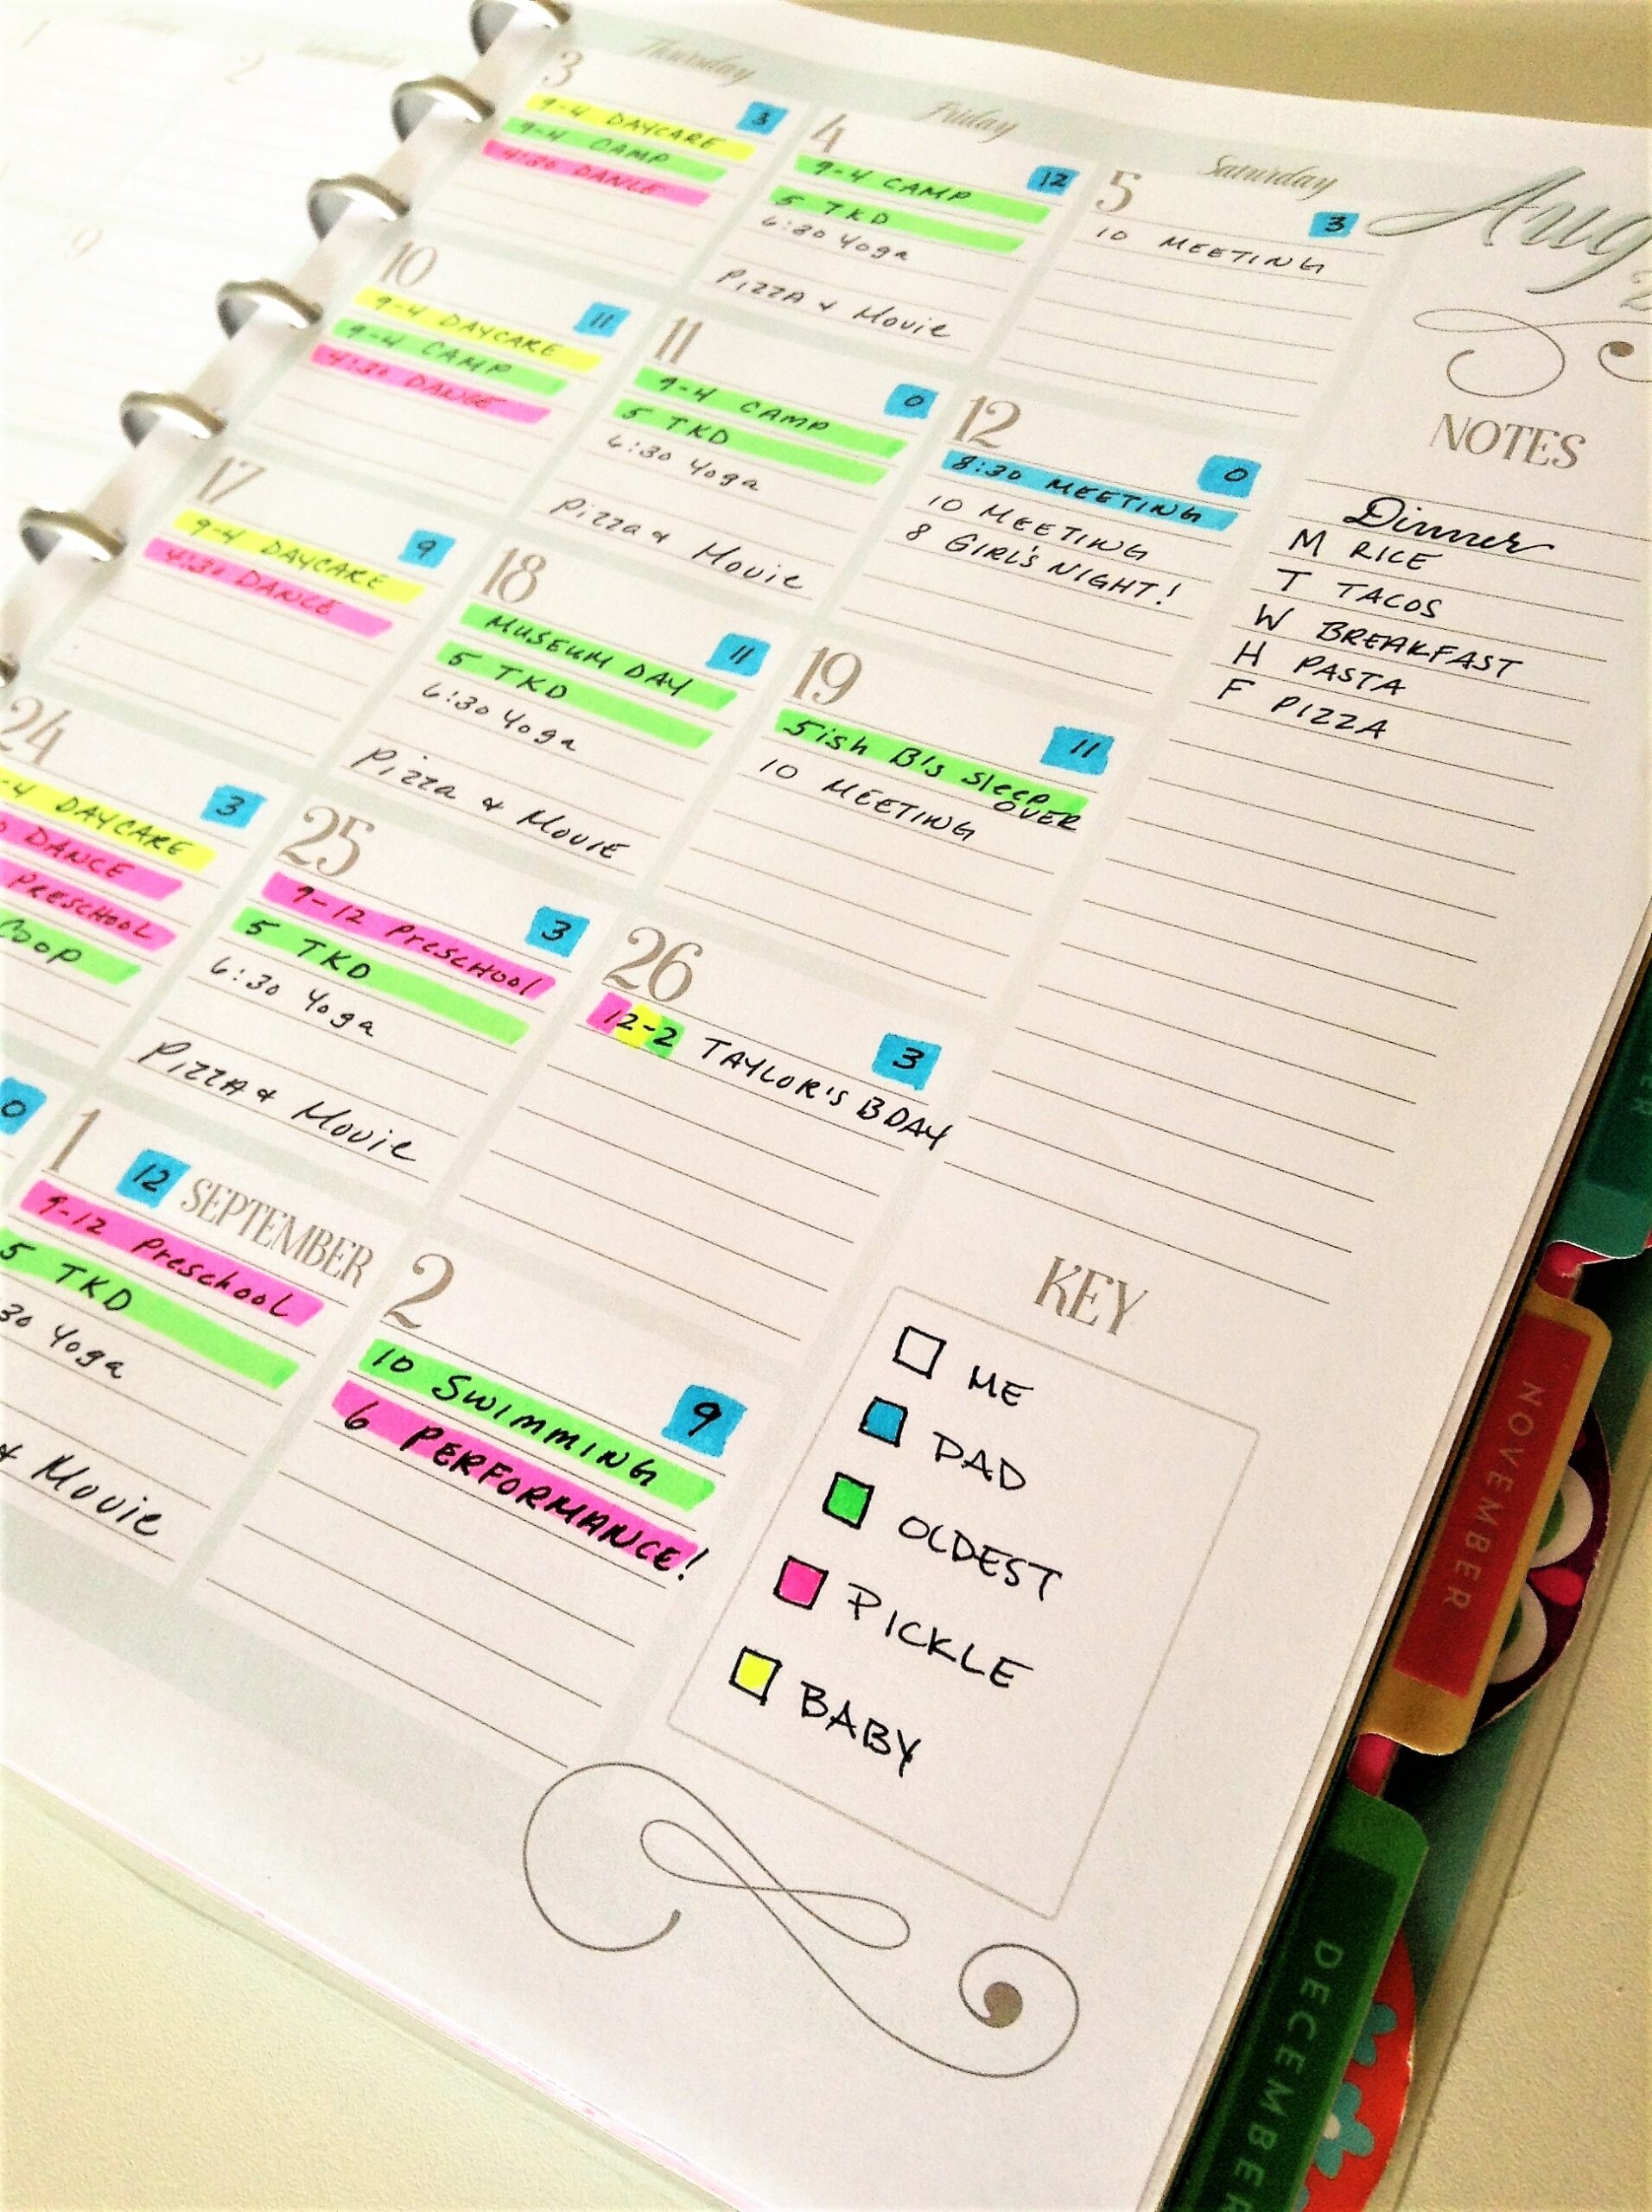 1
2
Thursday
Friday
Saturday
Aug
3
3
9-4 DAYCARE
9-4 CAMP
4:30 DANCE
4
12
9-4 CAMP
5 TKD
6:30 Yoga
PIZZA & Movie
5
3
10 MEETING
9
10
11
9-4 DAYCARE
9-4 CAMP
4:30 DANCE
11
0
9-4 CAMP
5 TKD
6:30 Yoga
Pizza & Movie
12
0
8:30 MEETING
10 MEETING
8 GIRL'S NIGHT!
17
9
9-4 DAYCARE
4:30 DANCE
18
11
MUSEUM DAY
5 TKD
6:30 Yoga
Pizza & MOVIE
19
11
5ish B's Sleep
OVER
10 MEETING
24
3
-4 DAYCARE
DANCE
PRESCHOOL
COOP
25
3
9-12 PRESCHOOL
5 TKD
6:30 Yoga
PIZZA & Movie
26
3
12-2 TAYLOR'S BDAY
0
1
12 SEPTEMBER
9-12 Preschool
5 TKD
30 Yoga
& Movie
2
9
10 SWIMMING
6 PERFORMANCE!
NOTES
Dinner
M RICE
T TACOS
W BREAKFAST
H PASTA
F PIZZA
KEY
ME
DAD
OLDEST
PICKLE
BABY
NOVEMBER
DECEMBER